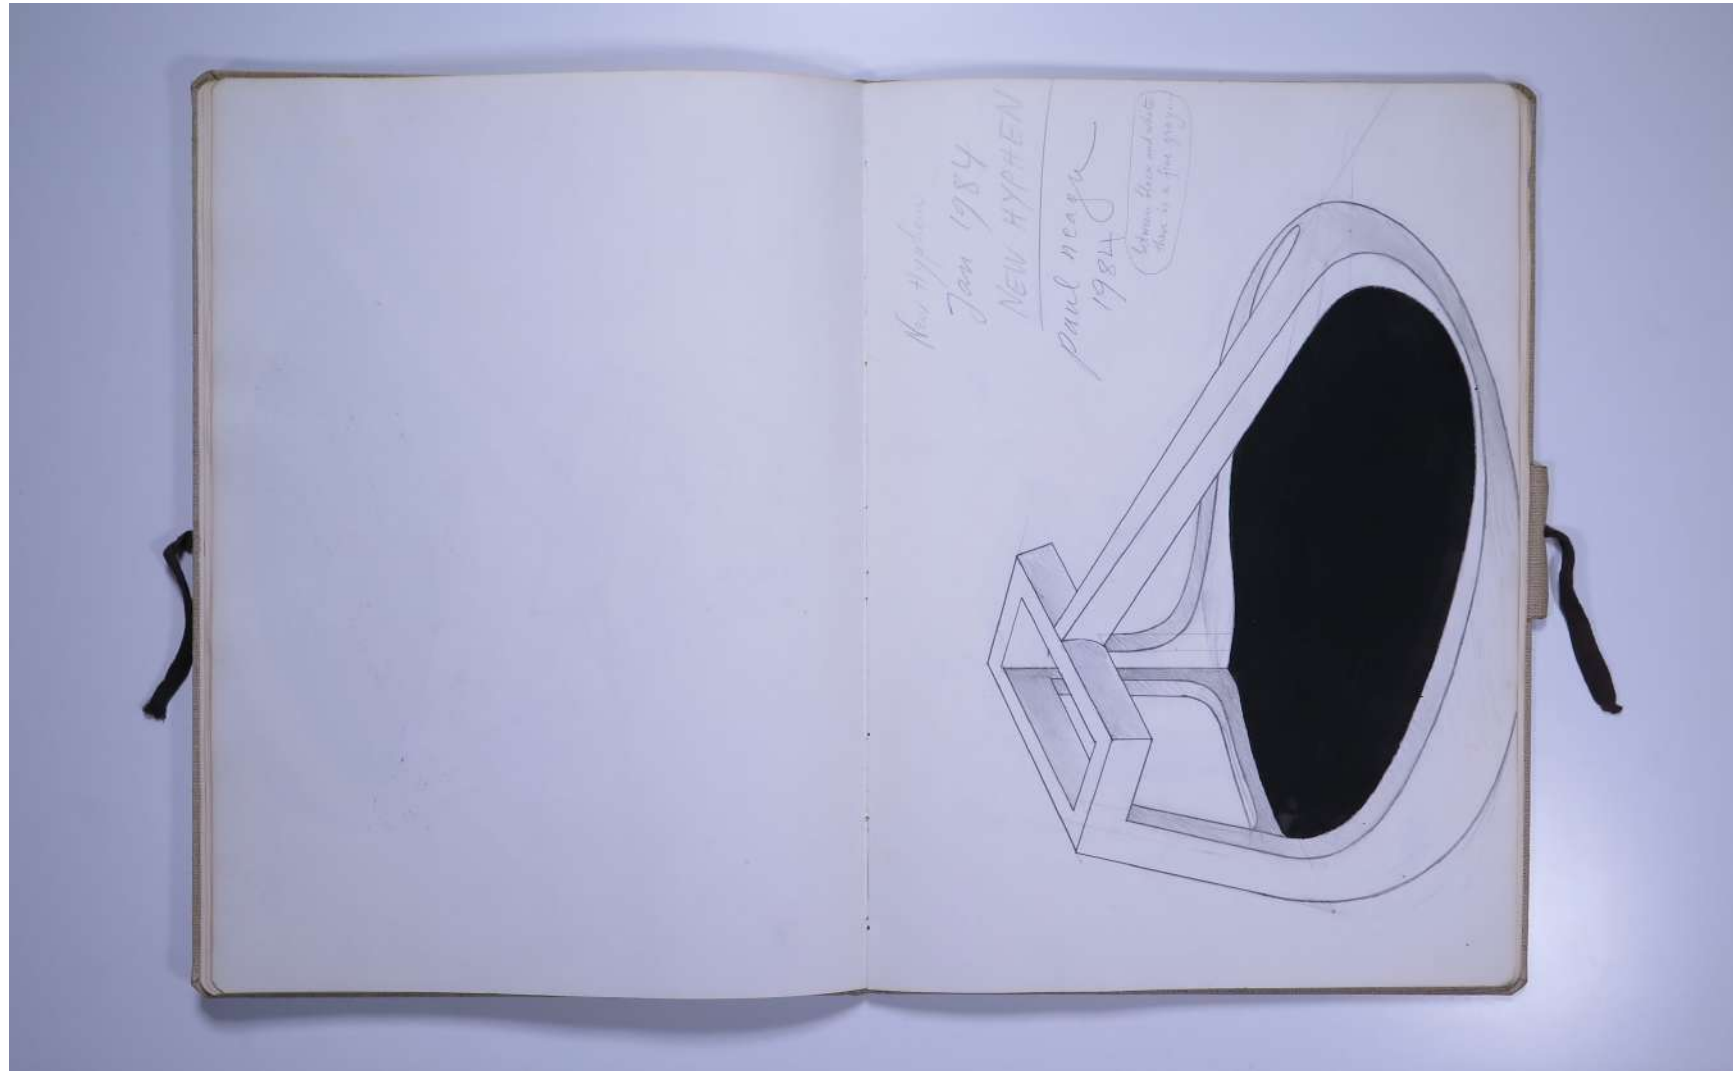 New Hyphen
Jan 1984
NEW HYPHEN
paul neagu
1984
between black and white
there is a fine gray...